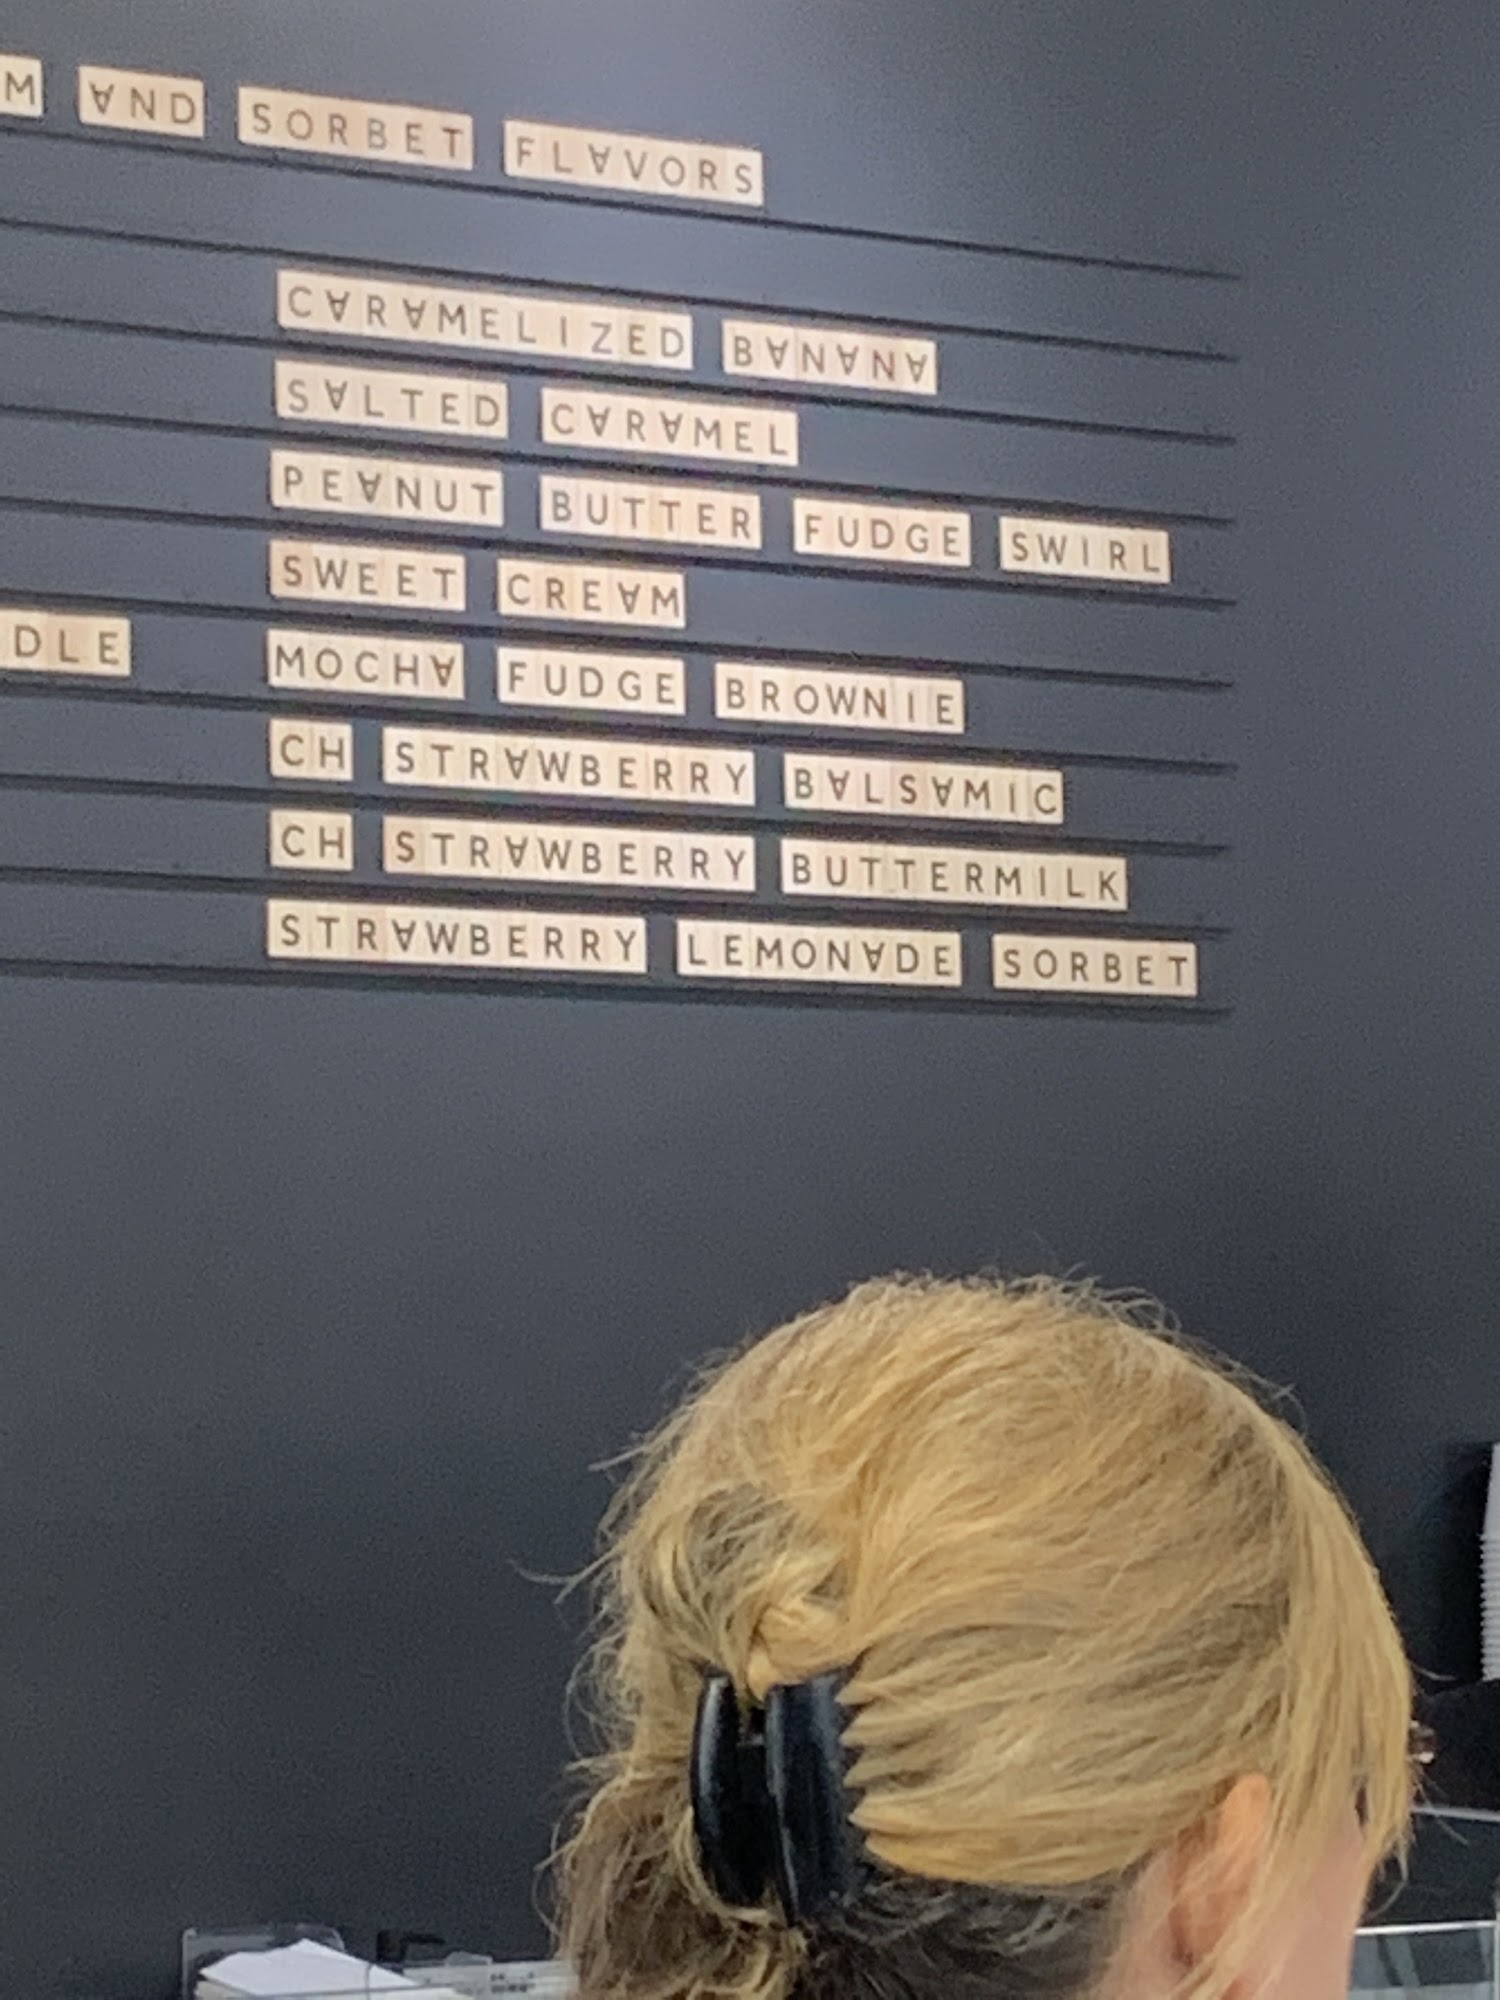 M ∀ND SORBET FL∀VORS
C∀R∀MELIZED B∀N∀N∀
S∀LTED C∀R∀MEL
PE∀NUT BUTTER FUDGE SWIRL
SWEET CRE∀M
DLE MOCH∀ FUDGE BROWNIE
CH STR∀WBERRY B∀LS∀MIC
CH STR∀WBERRY BUTTERMILK
STR∀WBERRY LEMON∀DE SORBET